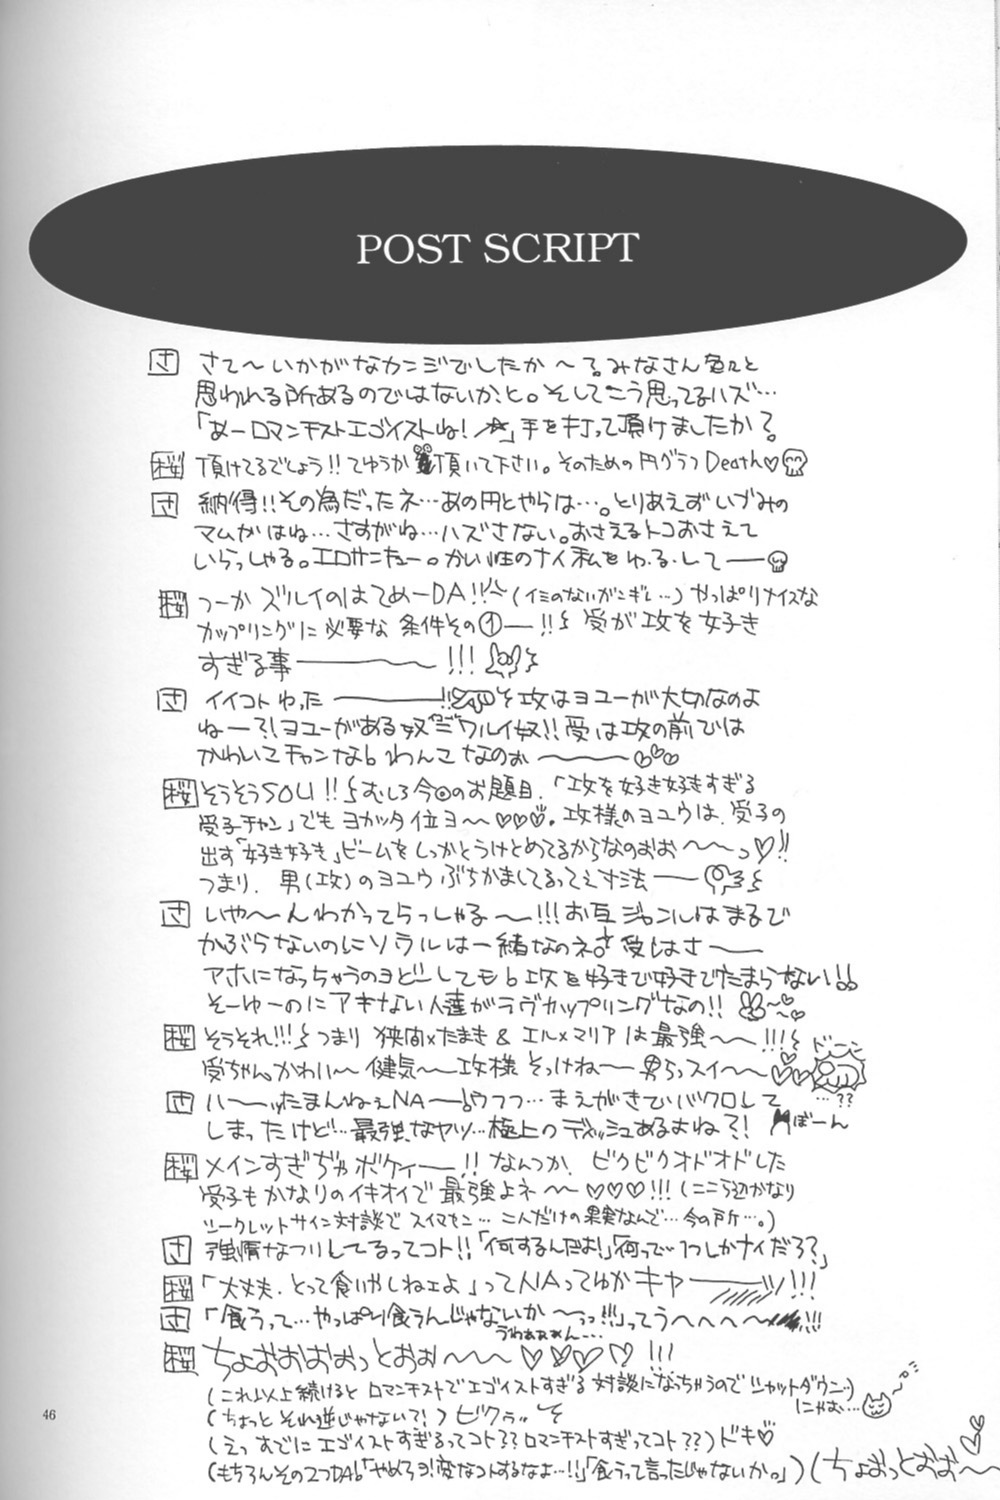 POST SCRIPT
さ さて〜いかがなカンジでしたか〜?みなさん色々と
思われる所あるのではないかと。そしてこう思ってるハズ…
「あーロマンチストエゴイストね!☆」手を打って頂けましたか?
桜 頂けてるでしょう!!てゆうか頂いて下さい。そのための円グラフDeath♡
さ 納得!!その為だったネ…あの円とやらは…。とりあえずいづみの
マムがはね…さすがね…ハズさない。おさえるトコおさえて
いらっしゃる。エロサンキュー。かい性のナイ私をゆ・る・して――
桜 つーかズルイのはてめーDA!!(イミのないがンギレ…)やっぱりナイスな
カップリングに必要な条件その①―!!受が攻を好き
すぎる事―――!!!
さ イイコトゆった―――!!そ攻はヨユーが大切なのよ
ねー?!ヨユーがある奴=ワルイ奴!!受は攻の前では
かわいこチャンなわんこなのぉ〜〜♡♡♡
桜 そうそうSOU!!むしろ今回のお題目、「攻を好き好きすぎる
受子チャン」でもヨカッタ位ヨ〜♡♡♡。攻様のヨユウは、受子の
出す「好き好き」ビームをしっかとうけとめてるからなのおお〜〜っ♡!!
つまり、男(攻)のヨユウぶちかましてるってえ寸法――
さ いや〜んわかってらっしゃる〜!!!お互ジャンルはまるで
かぶらないのにソウルは一緒なのネ。受はさ――
アホになっちゃうのヨどーしても攻を好きで好きでたまらない!
そーゆーのにアキない人達がラヴカップリングなの!!
桜 そうそれ!!!つまり 狭間×たまき & エル×マリアは最強〜〜!!!
ドーン
受ちゃんかわい〜健気〜攻様そっけね〜男らっスイ〜〜♡♡
…??
さ ハーッたまんねぇNA――ウフフ…まえがきでバクロして
しまったけど…最強なヤツ…極上のデッシュあるよね?!
ぼーん
桜 メインすぎぢゃボケィー!!なんつか、ビクビクオドオドした
受子もかなりのイキオイで最強よネ〜〜♡♡♡!!!(ここら辺かなり
シークレットサイン対談でスイマセン…二人だけの果実なんで…今の所…。)
さ 強情なフリしてるってコト!!「何するんだよ!」「何って1つしかナイだろ?」
桜 「大丈夫、とって食いやしねェよ」ってNAってゆかキャ――ッ!!!
さ 「食うって…やっぱり食うんじゃないか〜っっ!!!」ってうへへへへ〜!!!
うわぁぁぁん…
桜 ちょおおおおっとおぉ〜〜〜♡♡♡♡!!!
(これ以上続けるとロマンチストでエゴイストすぎる対談になっちゃうのでシャットダウン…)
にゃお…
(ちょっとそれ逆じゃない?!)ビクゥッ
(えっすでにエゴイストすぎるってコト??ロマンチストすぎってコト??)ドキ♡
(もちろんその2つDA!「やめろヨ!変なコトするなよ…!!」「食うって言ったじゃないか。」)(ちょおっとおお〜
46